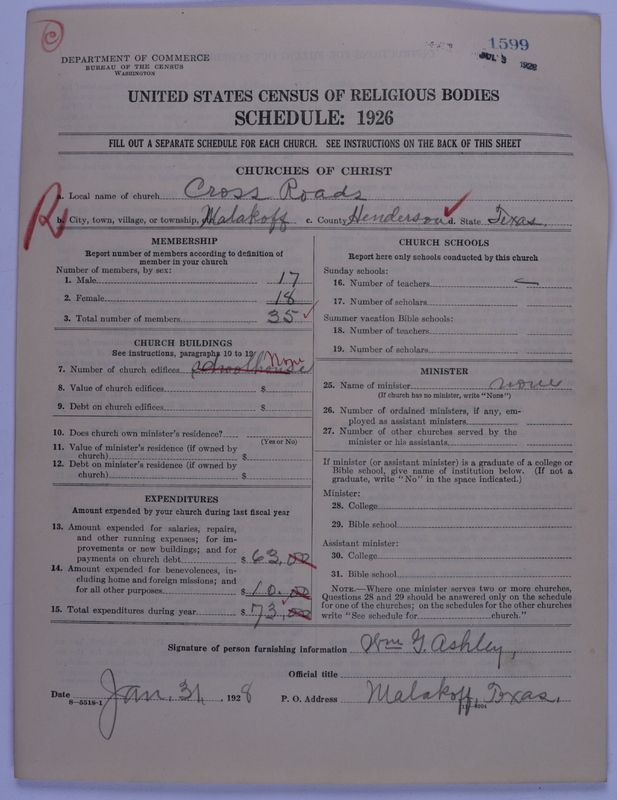 C
1599
JUL 3 1928
DEPARTMENT OF COMMERCE
BUREAU OF THE CENSUS
WASHINGTON
UNITED STATES CENSUS OF RELIGIOUS BODIES
SCHEDULE: 1926
FILL OUT A SEPARATE SCHEDULE FOR EACH CHURCH. SEE INSTRUCTIONS ON THE BACK OF THIS SHEET
CHURCHES OF CHRIST
a. Local name of church Cross Roads
b. City, town, village, or township, Malakoff c. County Henderson d. State Texas.
R
MEMBERSHIP
Report number of members according to definition of
member in your church
Number of members, by sex:
1. Male 17
2. Female 18
3. Total number of members 35
CHURCH BUILDINGS
See instructions, paragraphs 10 to 12
7. Number of church edifices schoolhouse None
8. Value of church edifices $
9. Debt on church edifices $
10. Does church own minister's residence?
(Yes or No)
11. Value of minister's residence (if owned by
church) $
12. Debt on minister's residence (if owned by
church) $
EXPENDITURES
Amount expended by your church during last fiscal year
13. Amount expended for salaries, repairs,
and other running expenses; for im-
provements or new buildings; and for
payments on church debt $ 63.00
14. Amount expended for benevolences, in-
cluding home and foreign missions; and
for all other purposes $ 10.00
15. Total expenditures during year $ 73.00
CHURCH SCHOOLS
Report here only schools conducted by this church
Sunday schools:
16. Number of teachers
17. Number of scholars
Summer vacation Bible schools:
18. Number of teachers
19. Number of scholars
MINISTER
25. Name of minister none
(If church has no minister, write "None")
26. Number of ordained ministers, if any, em-
ployed as assistant ministers
27. Number of other churches served by the
minister or his assistants
If minister (or assistant minister) is a graduate of a college or
Bible school, give name of institution below. (If not a
graduate, write "No" in the space indicated.)
Minister:
28. College
29. Bible school
Assistant minister:
30. College
31. Bible school
NOTE.—Where one minister serves two or more churches,
Questions 28 and 29 should be answered only on the schedule
for one of the churches; on the schedules for the other churches
write "See schedule for church."
Signature of person furnishing information Wm G. Ashley,
Official title
Date Jan. 31, 1928 P. O. Address Malakoff, Texas.
8—5518-1